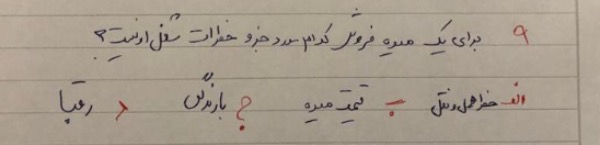 ۹ برای یک میوه فروش کدام مورد جزو خطرات شغل او نیست؟
الف خطر حمل و نقل ب قیمت میوه ج بارندگی د رقبا